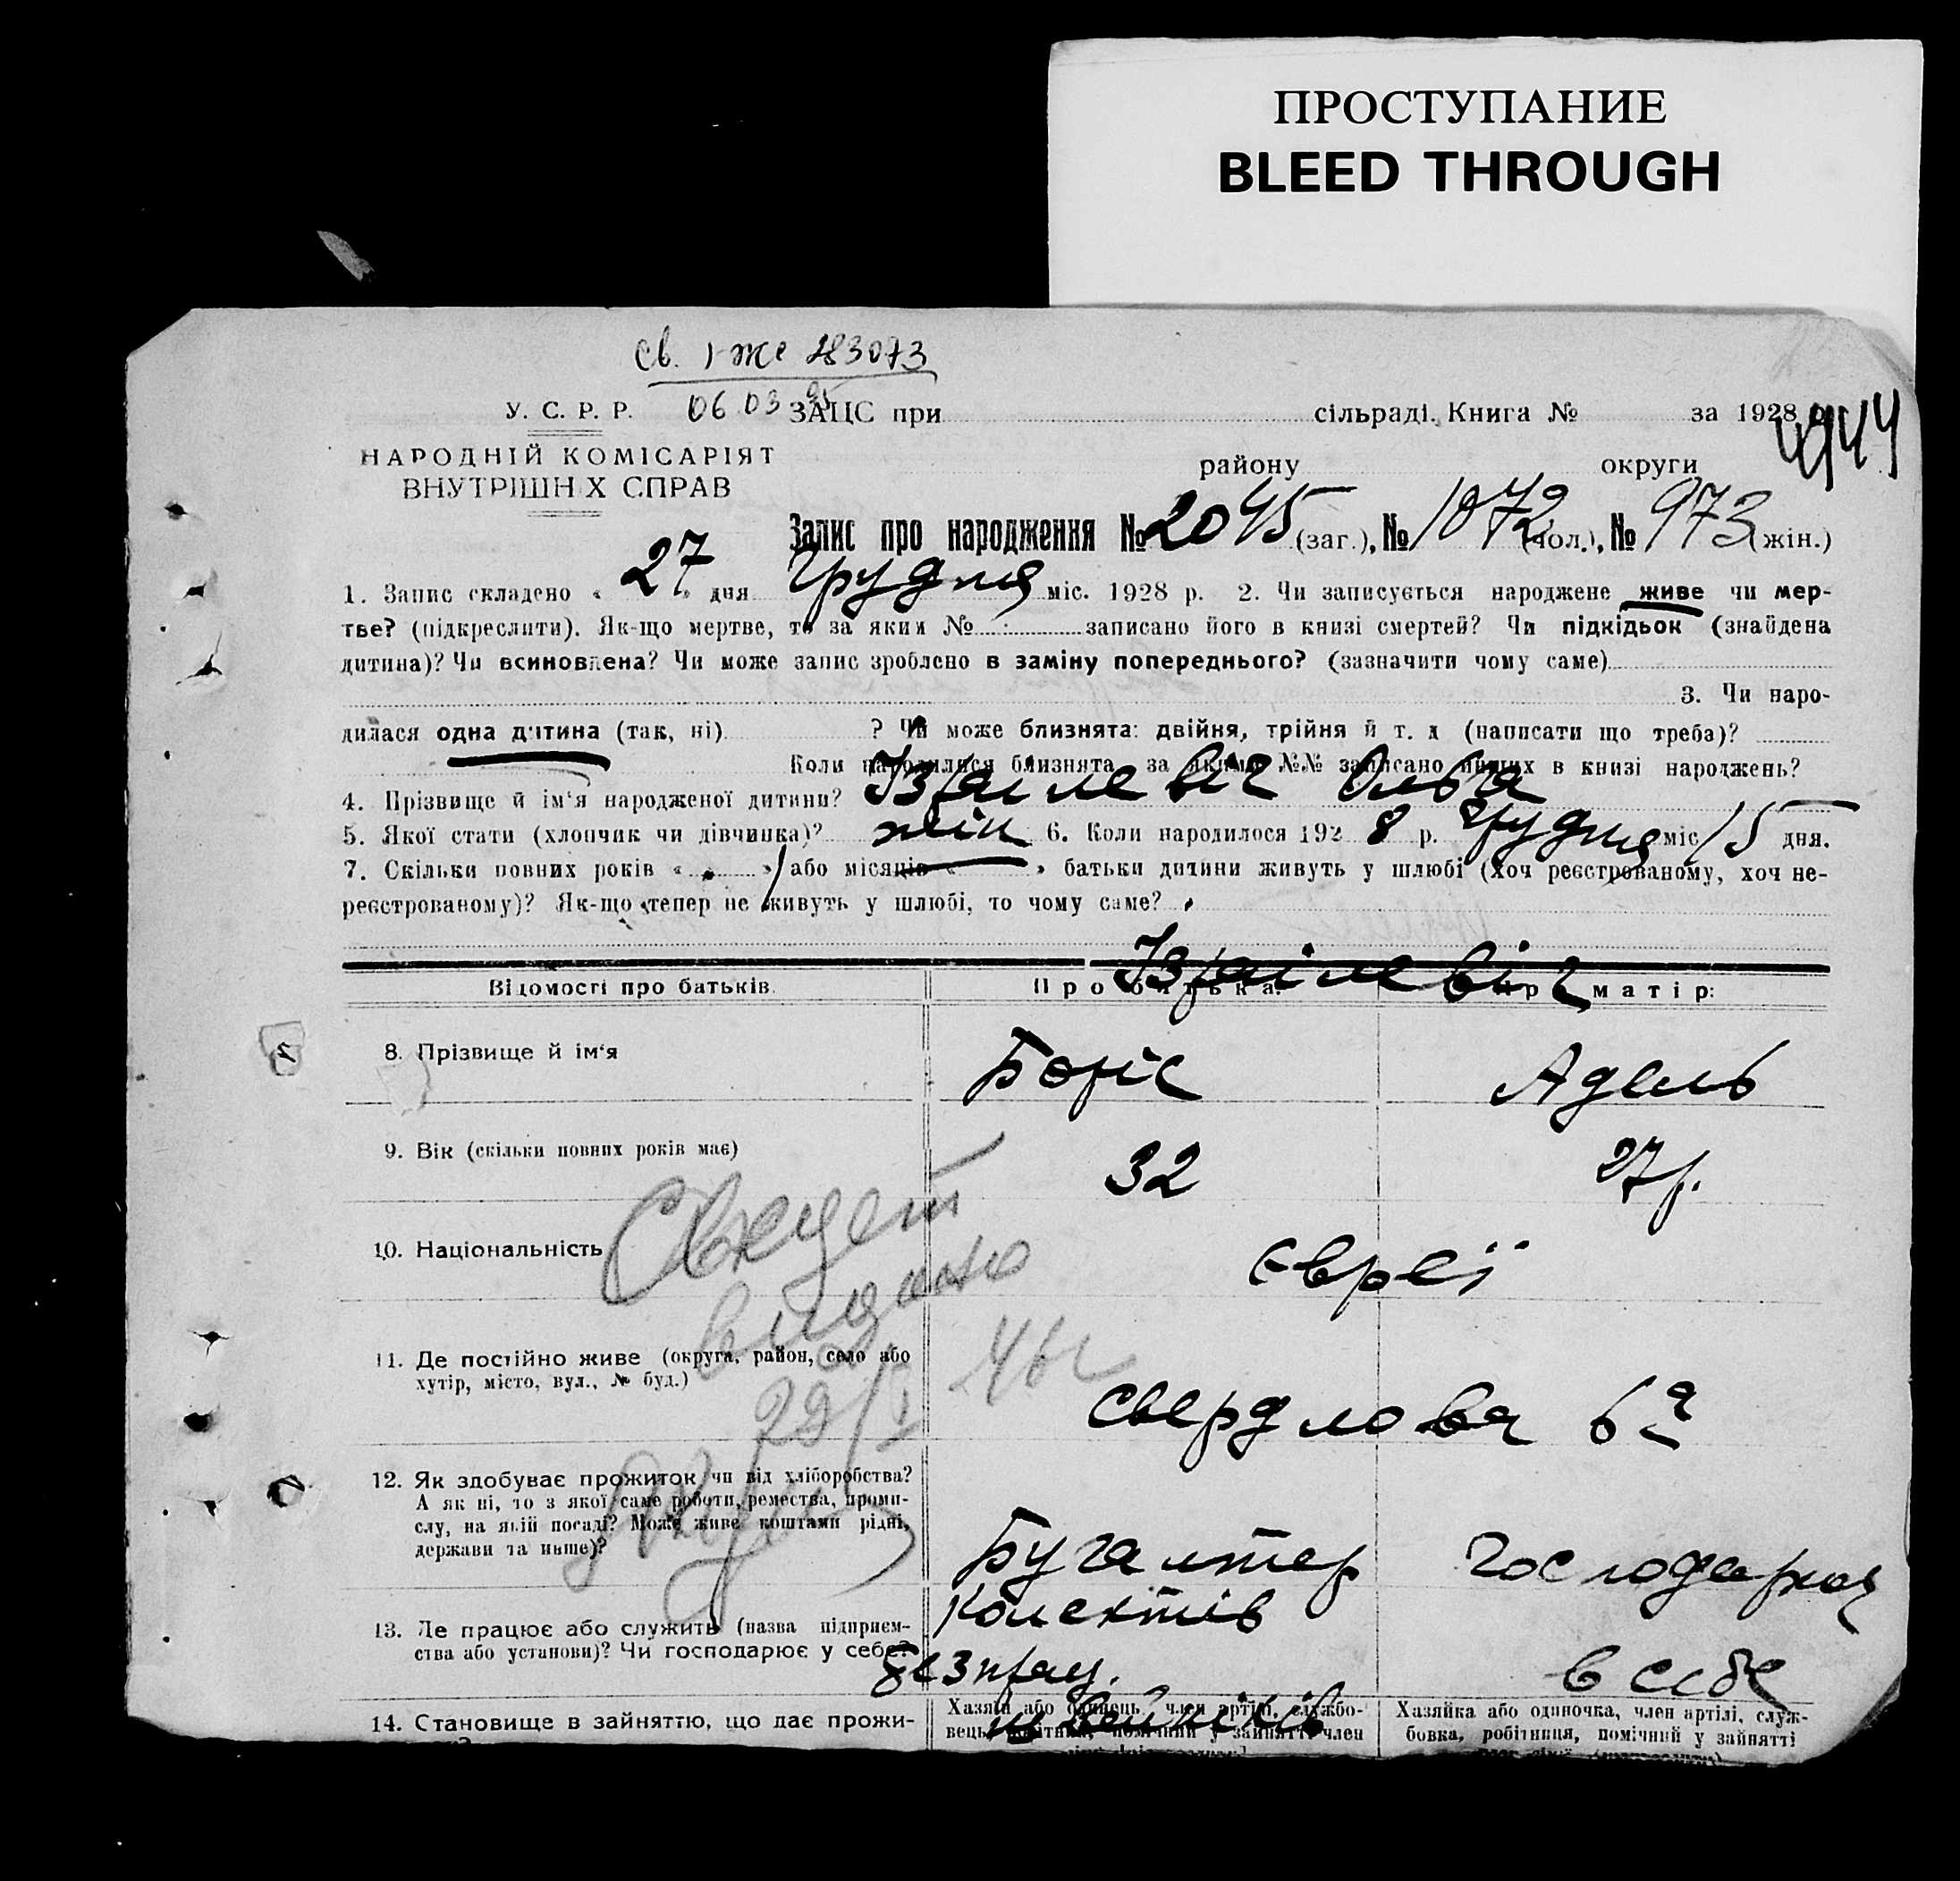 ПРОСТУПАНИЕ
BLEED THROUGH
Св. 1-же 283073
06 03 95
У. С. Р. Р. ЗАЦС при сільраді. Книга № за 1928 р.
4944
НАРОДНІЙ КОМІСАРІЯТ
ВНУТРІШНІХ СПРАВ
району округи
Запис про народження № 2045 (заг.), № 1072 (чол.), № 973 (жін.)
1. Запис складено « 27 » дня Грудня міс. 1928 р. 2. Чи записується народжене живе чи мер-
тве? (підкреслити). Як-що мертве, то за яким № записано його в книзі смертей? Чи підкідьок (знайдена
дитина)? Чи всиновлена? Чи може запис зроблено в заміну попереднього? (зазначити чому саме)
3. Чи наро-
дилася одна дитина (так, ні) ? Чи може близнята: двійня, трійня й т. д (написати що треба)?
Коли народилися близнята, за якими №№ записано инших в книзі народжень?
4. Прізвище й ім'я народженої дитини? Ізраілевіч Ольга
5. Якої стати (хлопчик чи дівчинка)? жін 6. Коли народилося 192 8 р. Грудня міс 15 дня.
7. Скільки повних років « » або місяців « » батьки дитини живуть у шлюбі (хоч реєстрованому, хоч не-
реєстрованому)? Як-що тепер не живуть у шлюбі, то чому саме?
Ізраілевіч
Відомості про батьків. Про батька: Про матір:
8. Прізвище й ім'я Боріс Адель
9. Вік (скільки повних років має) 32 27 р.
10. Національність євреї
Свидет
видано
29/I 46г
11. Де постійно живе (округа, район, село або
хутір, місто, вул., № буд.)
Свердлова 62
12. Як здобуває прожиток чи від хліборобства?
А як ні, то з якої саме роботи, ремества, проми-
слу, на якій посаді? Може живе коштами рідні,
держави та инше)?
Бугалтер Господарка
13. Де працює або служить (назва підприєм-
ства або установи)? Чи господарює у себе?
Колектів
безпрац.
швейніків
в себе
14. Становище в зайняттю, що дає прожи-
Хазяїн або одинець, член артілі, службо-
вець, робітник, помічний у зайнятті член
Хазяйка або одиночка, член артілі, служ-
бовка, робітниця, помічний у зайнятті